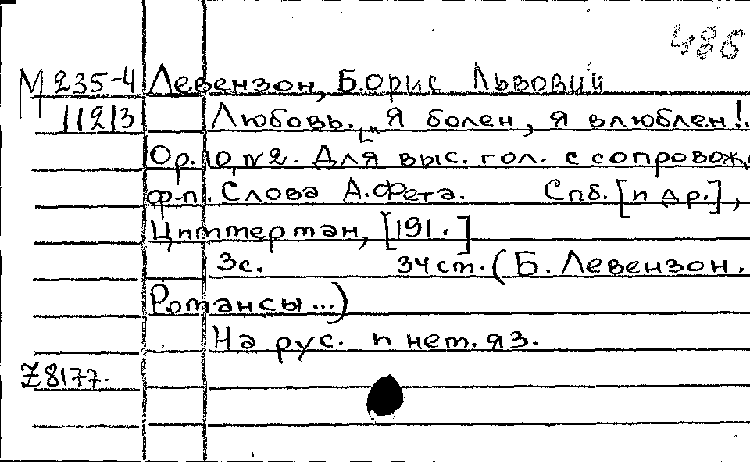 486
М 235-4 Левензон, Борис Львович
11213 Любовь. "Я болен, я влюблен!.
Ор. 10, №2. Для выс. гол. с сопровожд
ф-п. Слова А. Фета. Спб. [и др.],
Циммерман, [191. ]
3с. 34 см. (Б. Левензон.
Романсы...)
На рус. и нем. яз.
Z8177.